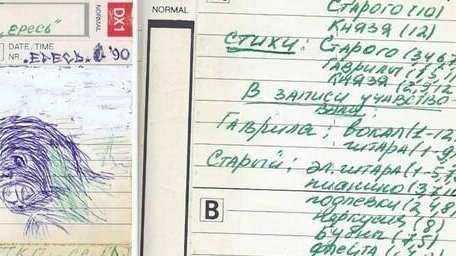 „Ересь"
NORMAL
DX1
DATE/TIME
NR. „ЕРЕСЬ" '90
NORMAL
Старого (10)
Князя (12)
Стихи: Старого (3,4,6,7
Гаврилы (1,5,11
Князя (2,9,12
В записи участво
вали:
Гаврила: вокал (1-12,
гитара (1-9,
Старый: эл. гитара (1-5,7,
пианино (3,7,1
подпевки (2,4,8,
перкуссия (8)
бубны (1,5)
флейта
B